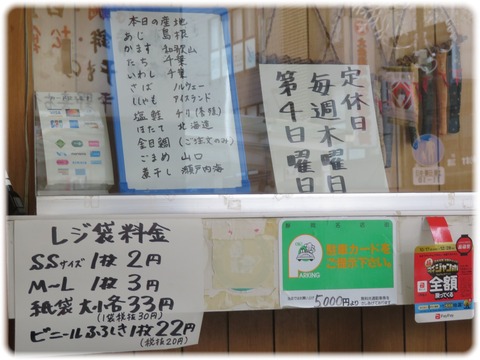 本日の産地
あじ 島根
かます 和歌山
たち 千葉
いわし 千葉
さば ノルウェー
ししゃも アイスランド
塩鮭 チリ(養殖)
ほたて 北海道
金目鯛 (ご注文のみ)
ごまめ 山口
素干し 瀬戸内海
定休日
毎週木曜日
第4日曜日
レジ袋料金
SSサイズ 1枚 2円
M~L 1枚 3円
紙袋 大小各33円
(1袋税抜30円)
ビニールふろしき1枚22円
(税抜20円)
駐車カードを
ご提示下さい。
PARKING
5000円より
全額
PayPay